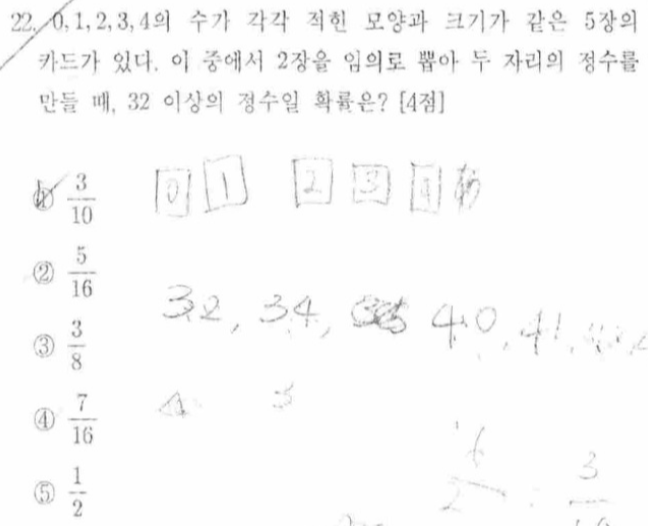 22. 0, 1, 2, 3, 4의 수가 각각 적힌 모양과 크기가 같은 5장의
카드가 있다. 이 중에서 2장을 임의로 뽑아 두 자리의 정수를
만들 때, 32 이상의 정수일 확률은? [4점]
① 3/10
0 1 2 3 4
② 5/16
32, 34, 40, 41,
③ 3/8
④ 7/16
4 3
⑤ 1/2
3